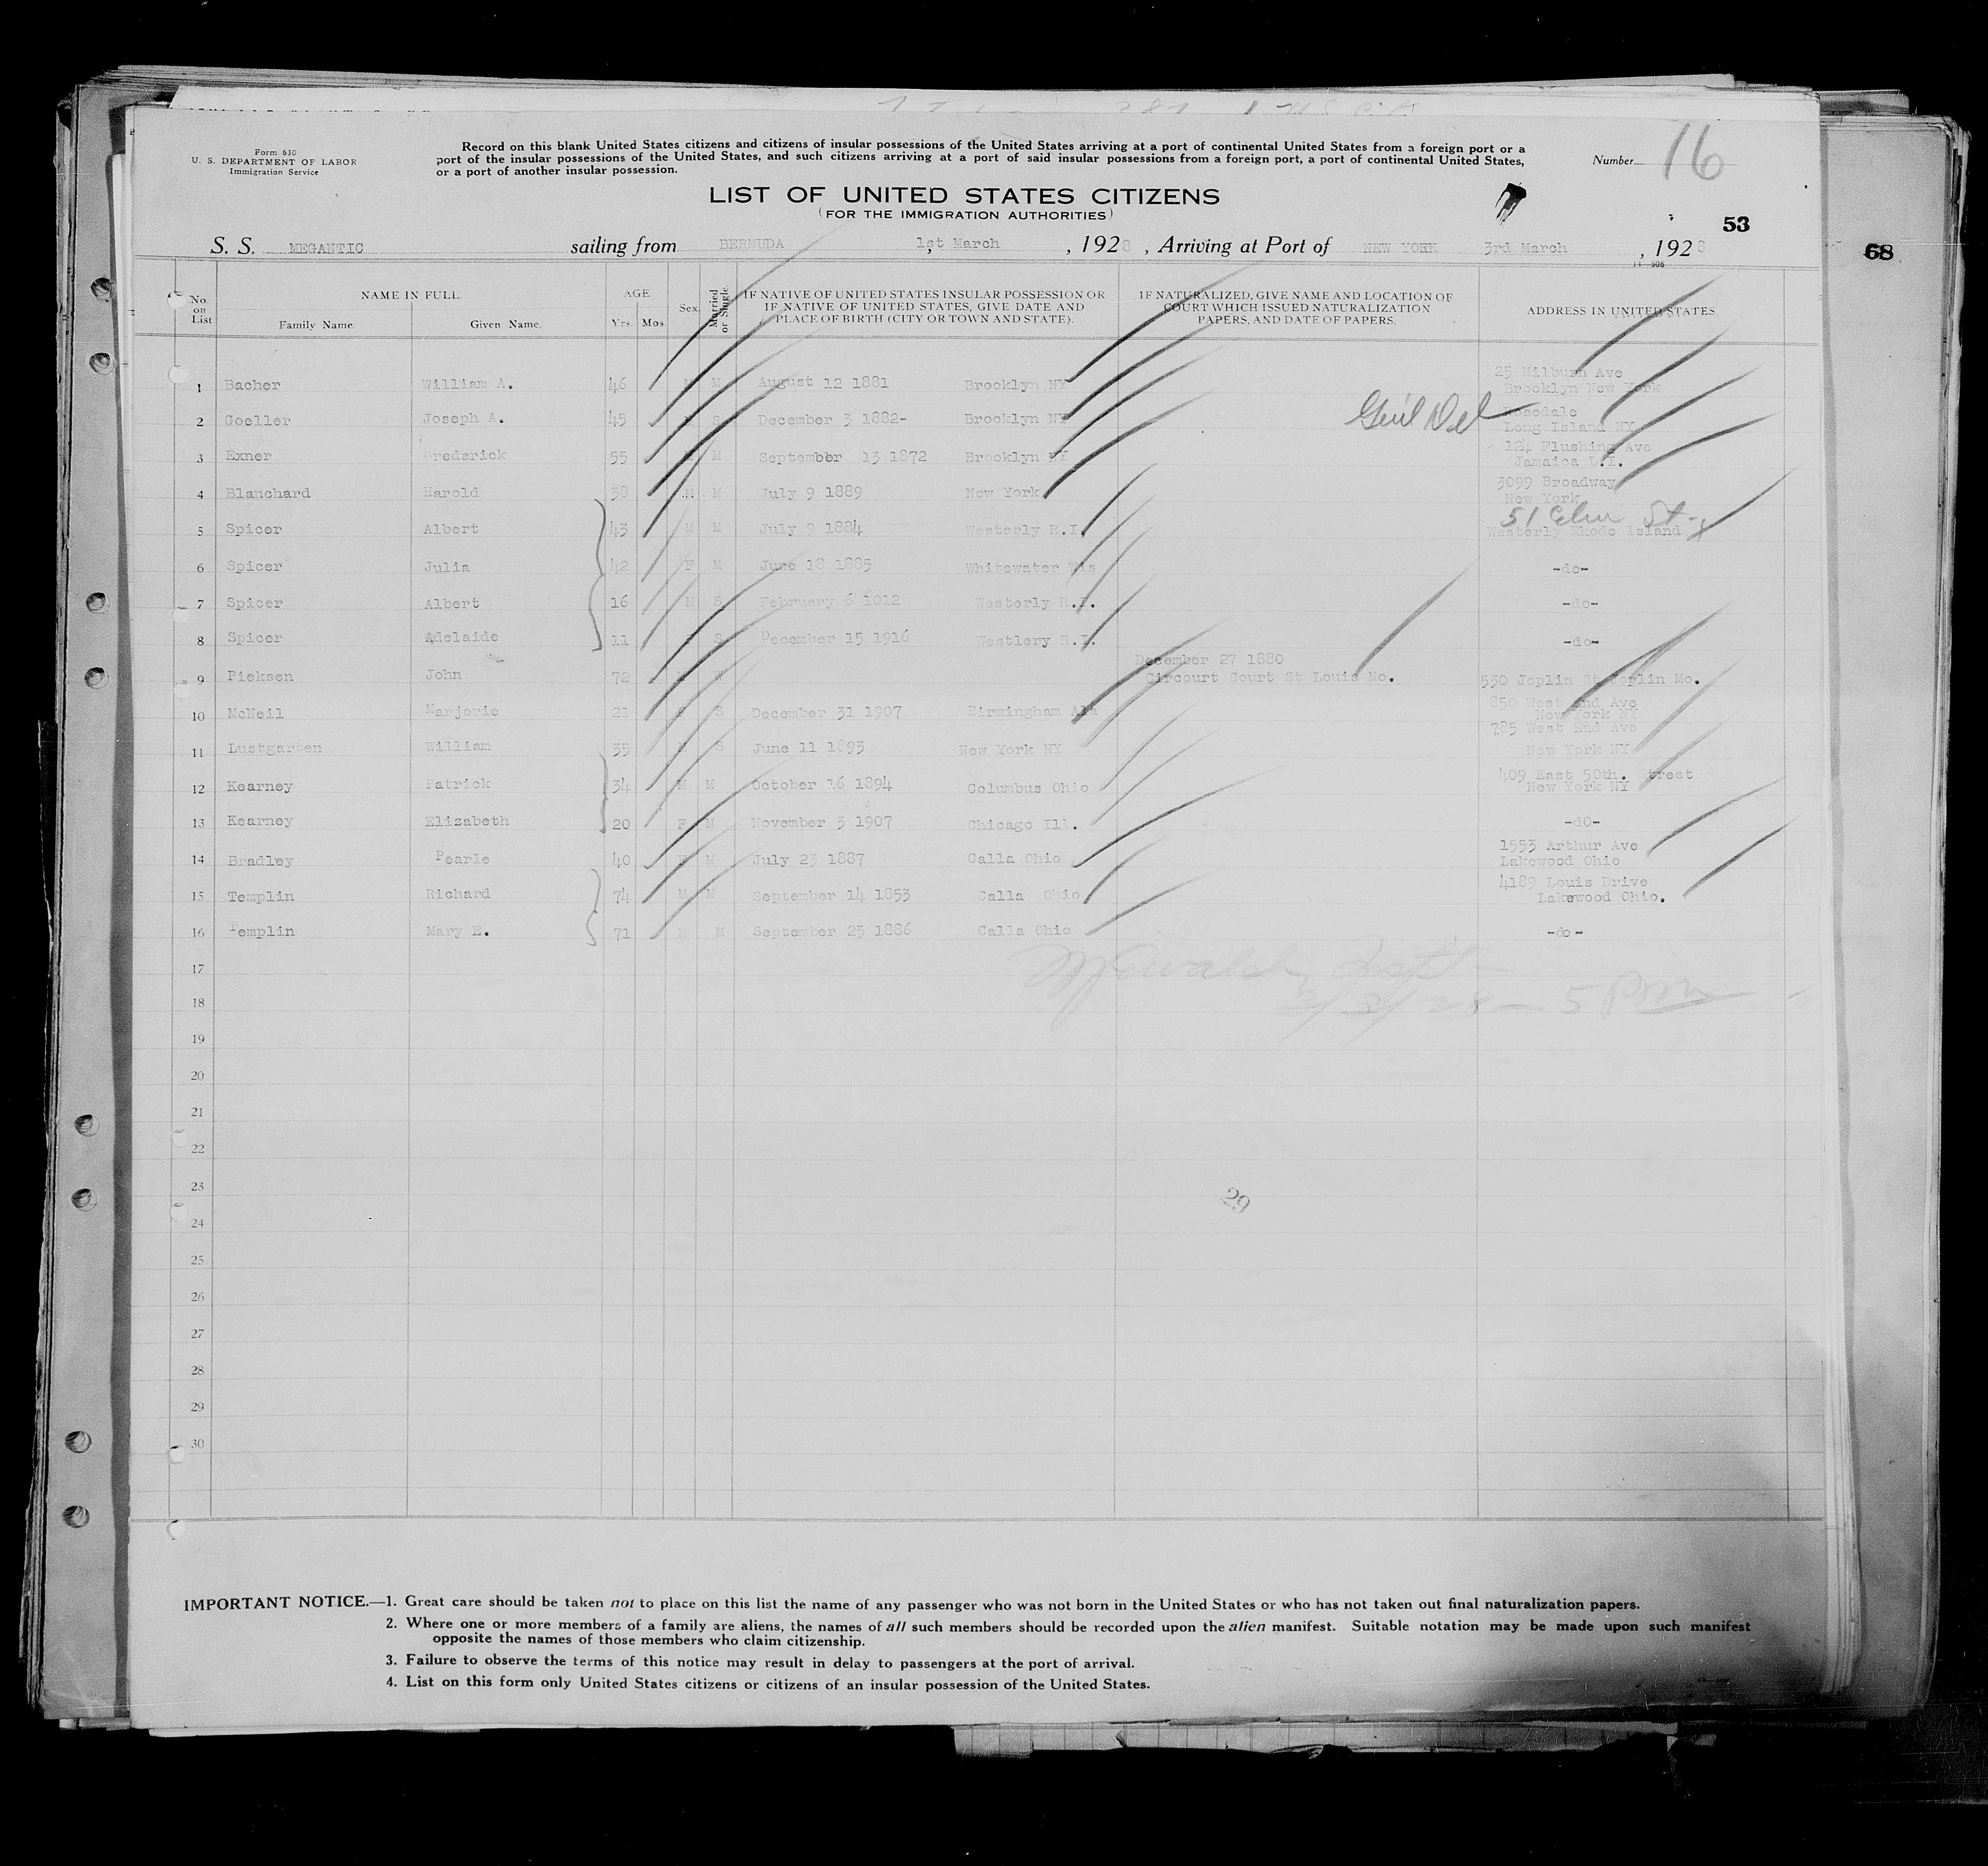 Form 630
U. S. DEPARTMENT OF LABOR
Immigration Service
Record on this blank United States citizens and citizens of insular possessions of the United States arriving at a port of continental United States from a foreign port or a
port of the insular possessions of the United States, and such citizens arriving at a port of said insular possessions from a foreign port, a port of continental United States,
or a port of another insular possession.
Number 16
LIST OF UNITED STATES CITIZENS
(FOR THE IMMIGRATION AUTHORITIES)
53
68
S. S. MEGANTIC sailing from BERMUDA 1st March, 1928, Arriving at Port of NEW YORK 3rd March, 1928
No. on List
NAME IN FULL.
Family Name. Given Name.
AGE.
Yrs. Mos.
Sex.
Married or Single.
IF NATIVE OF UNITED STATES INSULAR POSSESSION OR
IF NATIVE OF UNITED STATES, GIVE DATE AND
PLACE OF BIRTH (CITY OR TOWN AND STATE).
IF NATURALIZED, GIVE NAME AND LOCATION OF
COURT WHICH ISSUED NATURALIZATION
PAPERS, AND DATE OF PAPERS.
ADDRESS IN UNITED STATES.
1 Bacher William A. 46 M M August 12 1881 Brooklyn NY 25 Milburn Ave
Brooklyn New York
2 Goeller Joseph A. 45 M S December 3 1882- Brooklyn NY Rosedale
Long Island NY
3 Exner Frederick 55 M M September 13 1872 Brooklyn NY 124 Flushing Ave
Jamaica L.I.
4 Blanchard Harold 38 M M July 9 1889 New York 3099 Broadway
New York
5 Spicer Albert 43 M M July 9 1884 Westerly R.I. 51 Elm St
Westerly Rhode Island
6 Spicer Julia 42 F M June 18 1885 Whitewater Wis -do-
7 Spicer Albert 16 M S February 6 1012 Westerly R.I. -do-
8 Spicer Adelaide 11 F S December 15 1916 Westlery R.I. -do-
9 Pieksen John 72 M W December 27 1880
Circourt Court St Louis Mo. 530 Joplin St Joplin Mo.
10 McNeil Marjorie 21 F S December 31 1907 Birmingham Ala 850 West End Ave
New York NY
11 Lustgarten William 35 M S June 11 1893 New York NY 785 West End Ave
New York NY
12 Kearney Patrick 34 M M October 16 1894 Columbus Ohio 409 East 50th. Street
New York NY
13 Kearney Elizabeth 20 F M November 3 1907 Chicago Ill. -do-
14 Bradley Pearle 40 F M July 23 1887 Calla Ohio 1553 Arthur Ave
Lakewood Ohio
15 Templin Richard 74 M M September 14 1853 Calla Ohio 4189 Louis Drive
Lakewood Ohio.
16 Templin Mary E. 71 M September 25 1886 Calla Ohio -do-
17
18
19
20
21
22
23
29
24
25
26
27
28
29
30
IMPORTANT NOTICE.—1. Great care should be taken not to place on this list the name of any passenger who was not born in the United States or who has not taken out final naturalization papers.
2. Where one or more members of a family are aliens, the names of all such members should be recorded upon the alien manifest. Suitable notation may be made upon such manifest
opposite the names of those members who claim citizenship.
3. Failure to observe the terms of this notice may result in delay to passengers at the port of arrival.
4. List on this form only United States citizens or citizens of an insular possession of the United States.